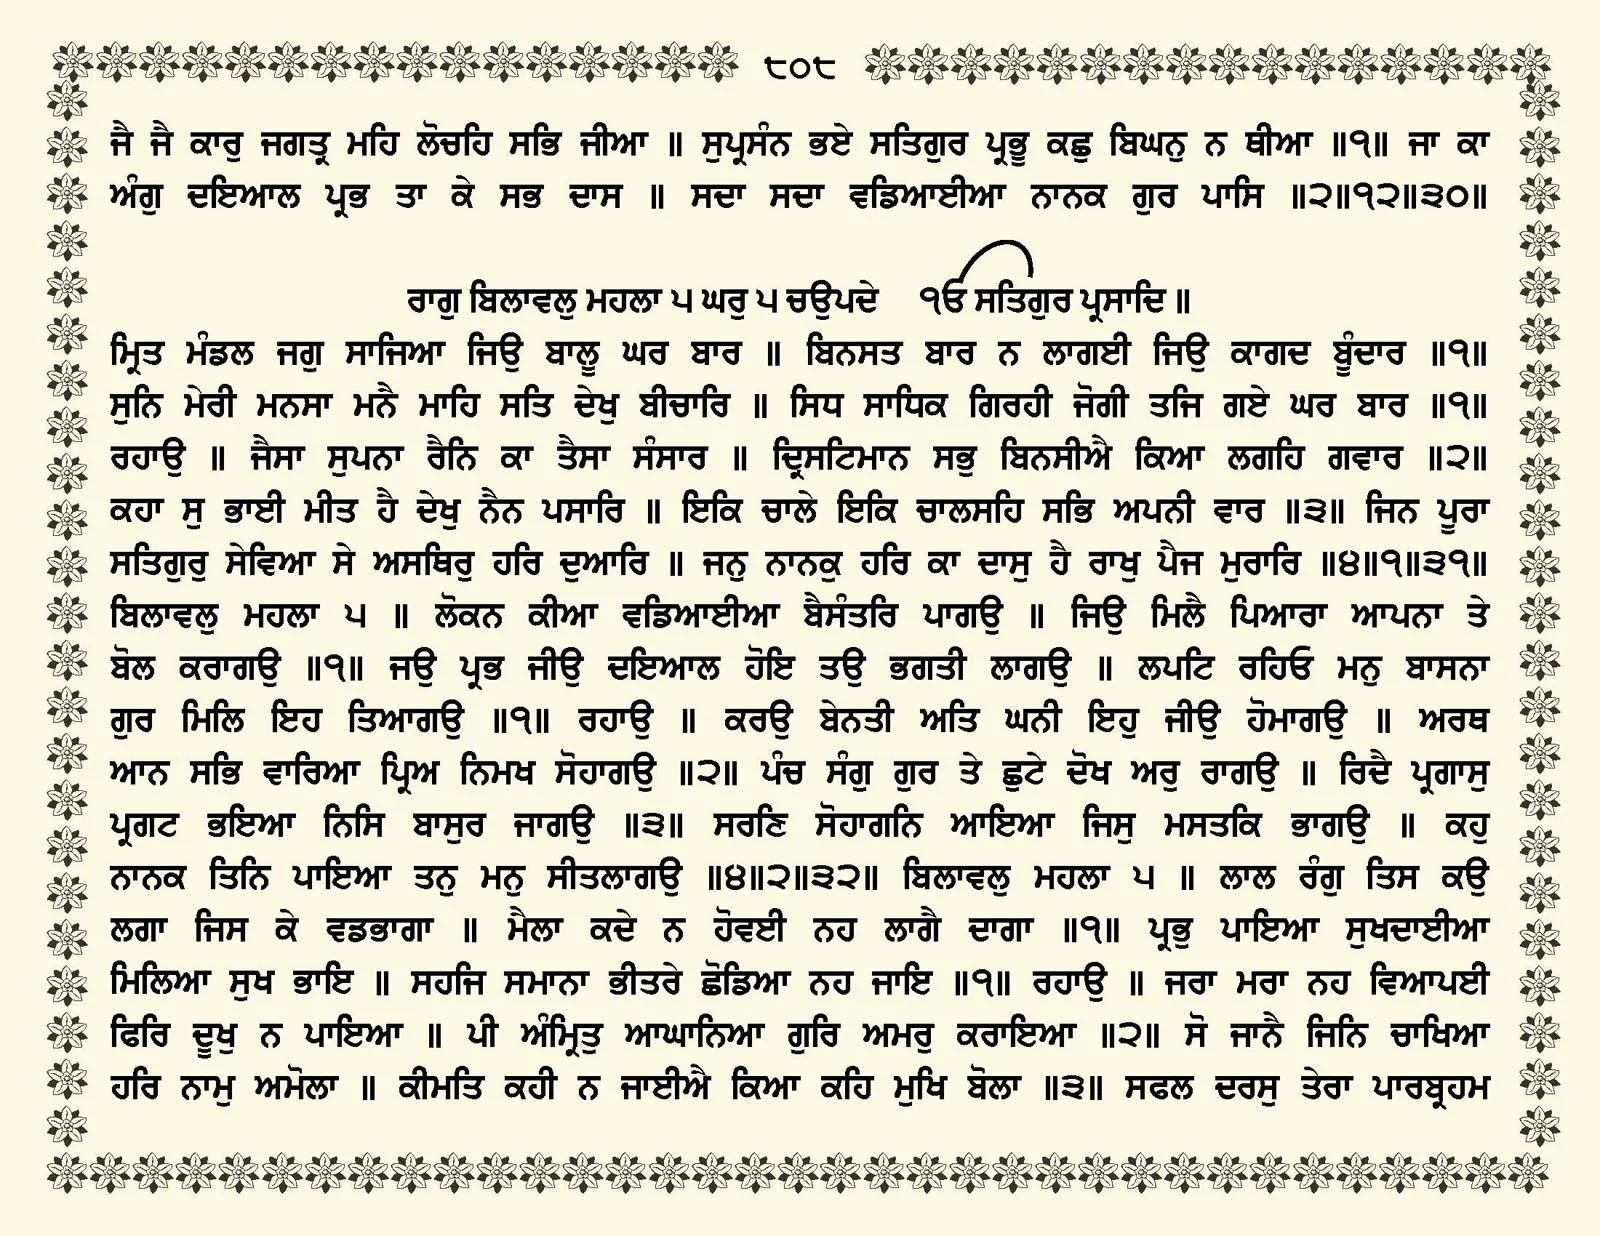 ੮੦੮
ਜੈ ਜੈ ਕਾਰੁ ਜਗਤ੍ਰ ਮਹਿ ਲੋਚਹਿ ਸਭਿ ਜੀਆ ॥ ਸੁਪ੍ਰਸੰਨ ਭਏ ਸਤਿਗੁਰ ਪ੍ਰਭੂ ਕਛੁ ਬਿਘਨੁ ਨ ਥੀਆ ॥੧॥ ਜਾ ਕਾ
ਅੰਗੁ ਦਇਆਲ ਪ੍ਰਭ ਤਾ ਕੇ ਸਭ ਦਾਸ ॥ ਸਦਾ ਸਦਾ ਵਡਿਆਈਆ ਨਾਨਕ ਗੁਰ ਪਾਸਿ ॥੨॥੧੨॥੩੦॥
ਰਾਗੁ ਬਿਲਾਵਲੁ ਮਹਲਾ ੫ ਘਰੁ ੫ ਚਉਪਦੇ ੴ ਸਤਿਗੁਰ ਪ੍ਰਸਾਦਿ ॥
ਮ੍ਰਿਤ ਮੰਡਲ ਜਗੁ ਸਾਜਿਆ ਜਿਉ ਬਾਲੂ ਘਰ ਬਾਰ ॥ ਬਿਨਸਤ ਬਾਰ ਨ ਲਾਗਈ ਜਿਉ ਕਾਗਦ ਬੂੰਦਾਰ ॥੧॥
ਸੁਨਿ ਮੇਰੀ ਮਨਸਾ ਮਨੈ ਮਾਹਿ ਸਤਿ ਦੇਖੁ ਬੀਚਾਰਿ ॥ ਸਿਧ ਸਾਧਿਕ ਗਿਰਹੀ ਜੋਗੀ ਤਜਿ ਗਏ ਘਰ ਬਾਰ ॥੧॥
ਰਹਾਉ ॥ ਜੈਸਾ ਸੁਪਨਾ ਰੈਨਿ ਕਾ ਤੈਸਾ ਸੰਸਾਰ ॥ ਦ੍ਰਿਸਟਿਮਾਨ ਸਭੁ ਬਿਨਸੀਐ ਕਿਆ ਲਗਹਿ ਗਵਾਰ ॥੨॥
ਕਹਾ ਸੁ ਭਾਈ ਮੀਤ ਹੈ ਦੇਖੁ ਨੈਨ ਪਸਾਰਿ ॥ ਇਕਿ ਚਾਲੇ ਇਕਿ ਚਾਲਸਹਿ ਸਭਿ ਅਪਨੀ ਵਾਰ ॥੩॥ ਜਿਨ ਪੂਰਾ
ਸਤਿਗੁਰੁ ਸੇਵਿਆ ਸੇ ਅਸਥਿਰੁ ਹਰਿ ਦੁਆਰਿ ॥ ਜਨੁ ਨਾਨਕੁ ਹਰਿ ਕਾ ਦਾਸੁ ਹੈ ਰਾਖੁ ਪੈਜ ਮੁਰਾਰਿ ॥੪॥੧॥੩੧॥
ਬਿਲਾਵਲੁ ਮਹਲਾ ੫ ॥ ਲੋਕਨ ਕੀਆ ਵਡਿਆਈਆ ਬੈਸੰਤਰਿ ਪਾਗਉ ॥ ਜਿਉ ਮਿਲੈ ਪਿਆਰਾ ਆਪਨਾ ਤੇ
ਬੋਲ ਕਰਾਗਉ ॥੧॥ ਜਉ ਪ੍ਰਭ ਜੀਉ ਦਇਆਲ ਹੋਇ ਤਉ ਭਗਤੀ ਲਾਗਉ ॥ ਲਪਟਿ ਰਹਿਓ ਮਨੁ ਬਾਸਨਾ
ਗੁਰ ਮਿਲਿ ਇਹ ਤਿਆਗਉ ॥੧॥ ਰਹਾਉ ॥ ਕਰਉ ਬੇਨਤੀ ਅਤਿ ਘਨੀ ਇਹੁ ਜੀਉ ਹੋਮਾਗਉ ॥ ਅਰਥ
ਆਨ ਸਭਿ ਵਾਰਿਆ ਪ੍ਰਿਅ ਨਿਮਖ ਸੋਹਾਗਉ ॥੨॥ ਪੰਚ ਸੰਗੁ ਗੁਰ ਤੇ ਛੁਟੇ ਦੋਖ ਅਰੁ ਰਾਗਉ ॥ ਰਿਦੈ ਪ੍ਰਗਾਸੁ
ਪ੍ਰਗਟ ਭਇਆ ਨਿਸਿ ਬਾਸੁਰ ਜਾਗਉ ॥੩॥ ਸਰਣਿ ਸੋਹਾਗਨਿ ਆਇਆ ਜਿਸੁ ਮਸਤਕਿ ਭਾਗਉ ॥ ਕਹੁ
ਨਾਨਕ ਤਿਨਿ ਪਾਇਆ ਤਨੁ ਮਨੁ ਸੀਤਲਾਗਉ ॥੪॥੨॥੩੨॥ ਬਿਲਾਵਲੁ ਮਹਲਾ ੫ ॥ ਲਾਲ ਰੰਗੁ ਤਿਸ ਕਉ
ਲਗਾ ਜਿਸ ਕੇ ਵਡਭਾਗਾ ॥ ਮੈਲਾ ਕਦੇ ਨ ਹੋਵਈ ਨਹ ਲਾਗੈ ਦਾਗਾ ॥੧॥ ਪ੍ਰਭੁ ਪਾਇਆ ਸੁਖਦਾਈਆ
ਮਿਲਿਆ ਸੁਖ ਭਾਇ ॥ ਸਹਜਿ ਸਮਾਨਾ ਭੀਤਰੇ ਛੋਡਿਆ ਨਹ ਜਾਇ ॥੧॥ ਰਹਾਉ ॥ ਜਰਾ ਮਰਾ ਨਹ ਵਿਆਪਈ
ਫਿਰਿ ਦੂਖੁ ਨ ਪਾਇਆ ॥ ਪੀ ਅੰਮ੍ਰਿਤੁ ਆਘਾਨਿਆ ਗੁਰਿ ਅਮਰੁ ਕਰਾਇਆ ॥੨॥ ਸੋ ਜਾਨੈ ਜਿਨਿ ਚਾਖਿਆ
ਹਰਿ ਨਾਮੁ ਅਮੋਲਾ ॥ ਕੀਮਤਿ ਕਹੀ ਨ ਜਾਈਐ ਕਿਆ ਕਹਿ ਮੁਖਿ ਬੋਲਾ ॥੩॥ ਸਫਲ ਦਰਸੁ ਤੇਰਾ ਪਾਰਬ੍ਰਹਮ